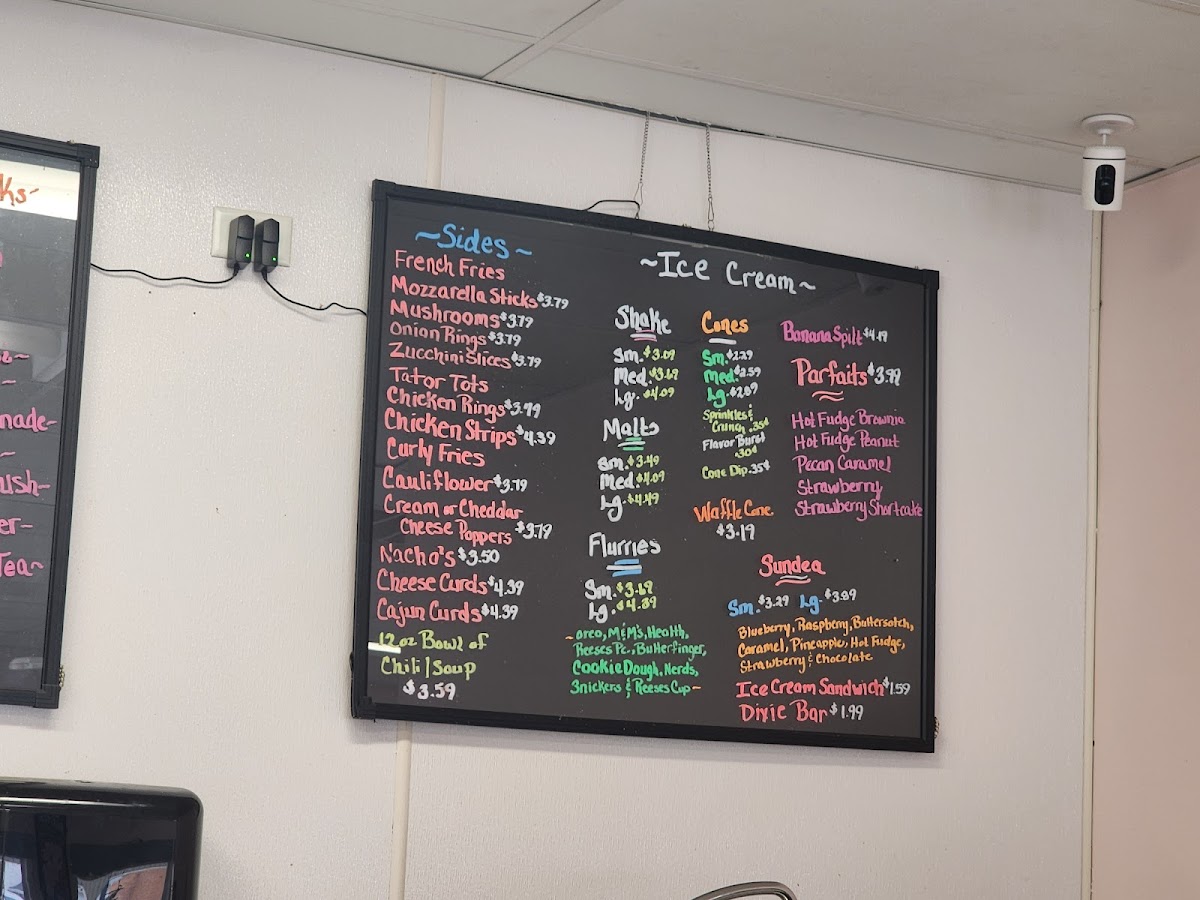 ks~
nade~
ush~
er~
Tea~
~Sides~
French Fries
Mozzarella Sticks $3.79
Mushrooms $3.79
Onion Rings $3.79
Zucchini Slices $3.79
Tator Tots
Chicken Rings
Chicken Strips $4.39
Curly Fries
Cauliflower $3.79
Cream or Cheddar
Cheese Poppers $3.79
Nacho's $3.50
Cheese Curds $4.39
Cajun Curds $4.39
12oz Bowl of
Chili/Soup
$3.59
~Ice Cream~
Shake
Sm. $3.09
Med. $3.69
Lg. $4.09
Malts
Sm. $3.49
Med. $4.09
Lg. $4.49
Flurries
Sm. $3.69
Lg. $4.39
~ oreo, M&M's, Health,
Reeses Pc., Butterfinger,
Cookie Dough, Nerds,
Snickers & Reeses Cup ~
Cones
Sm. $2.29
Med. $2.59
Lg. $2.89
Sprinkles &
Crunch .35¢
Flavor Burst
.30¢
Cone Dip .35¢
Waffle Cone
$3.19
Banana Spilt $4.19
Parfaits $3.99
Hot Fudge Brownie
Hot Fudge Peanut
Pecan Caramel
Strawberry
Strawberry Shortcake
Sundea
Sm. $3.29 Lg. $3.89
Blueberry, Raspberry, Buttersotch,
Caramel, Pineapple, Hot Fudge,
Strawberry & Chocolate
Ice Cream Sandwich $1.59
Dixie Bar $1.99